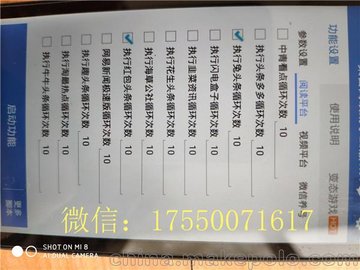 功能设置 使用说明 变态游戏
参数设置 阅读平台 视频平台 微信养号
中青看点循环次数 10
执行头条多多循环次数 10
执行兔头条循环次数 10
执行闪电盒子循环次数 10
执行韭菜资讯循环次数 10
执行花生头条循环次数 10
执行海草公社循环次数 10
执行红包头条循环次数 10
网易新闻极速版循环次数 10
执行趣头条循环次数 10
执行淘最热点循环次数 10
执行牛牛头条循环次数 10
启动功能 更多脚本
微信：17550071617
SHOT ON MI 8
AI DUAL CAMERA
china.makepolo.com